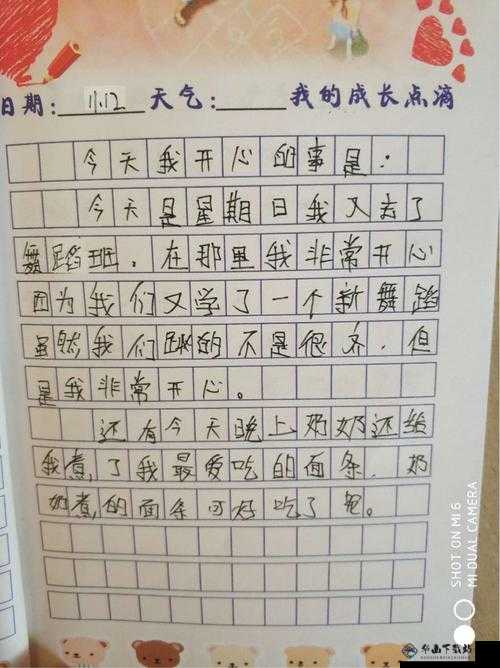 日期：11.12 天气： 我的成长点滴
今天我开心的事是：
今天是星期日我又去了
舞蹈班，在那里我非常开心
因为我们又学了一个新舞蹈
虽然我们跳的不是很齐，但
是我非常开心。
还有今天晚上奶奶还给
我煮了我最爱吃的面条，奶
奶煮的面条可好吃了
SHOT ON MI 6
MI DUAL CAMERA
华画下载站